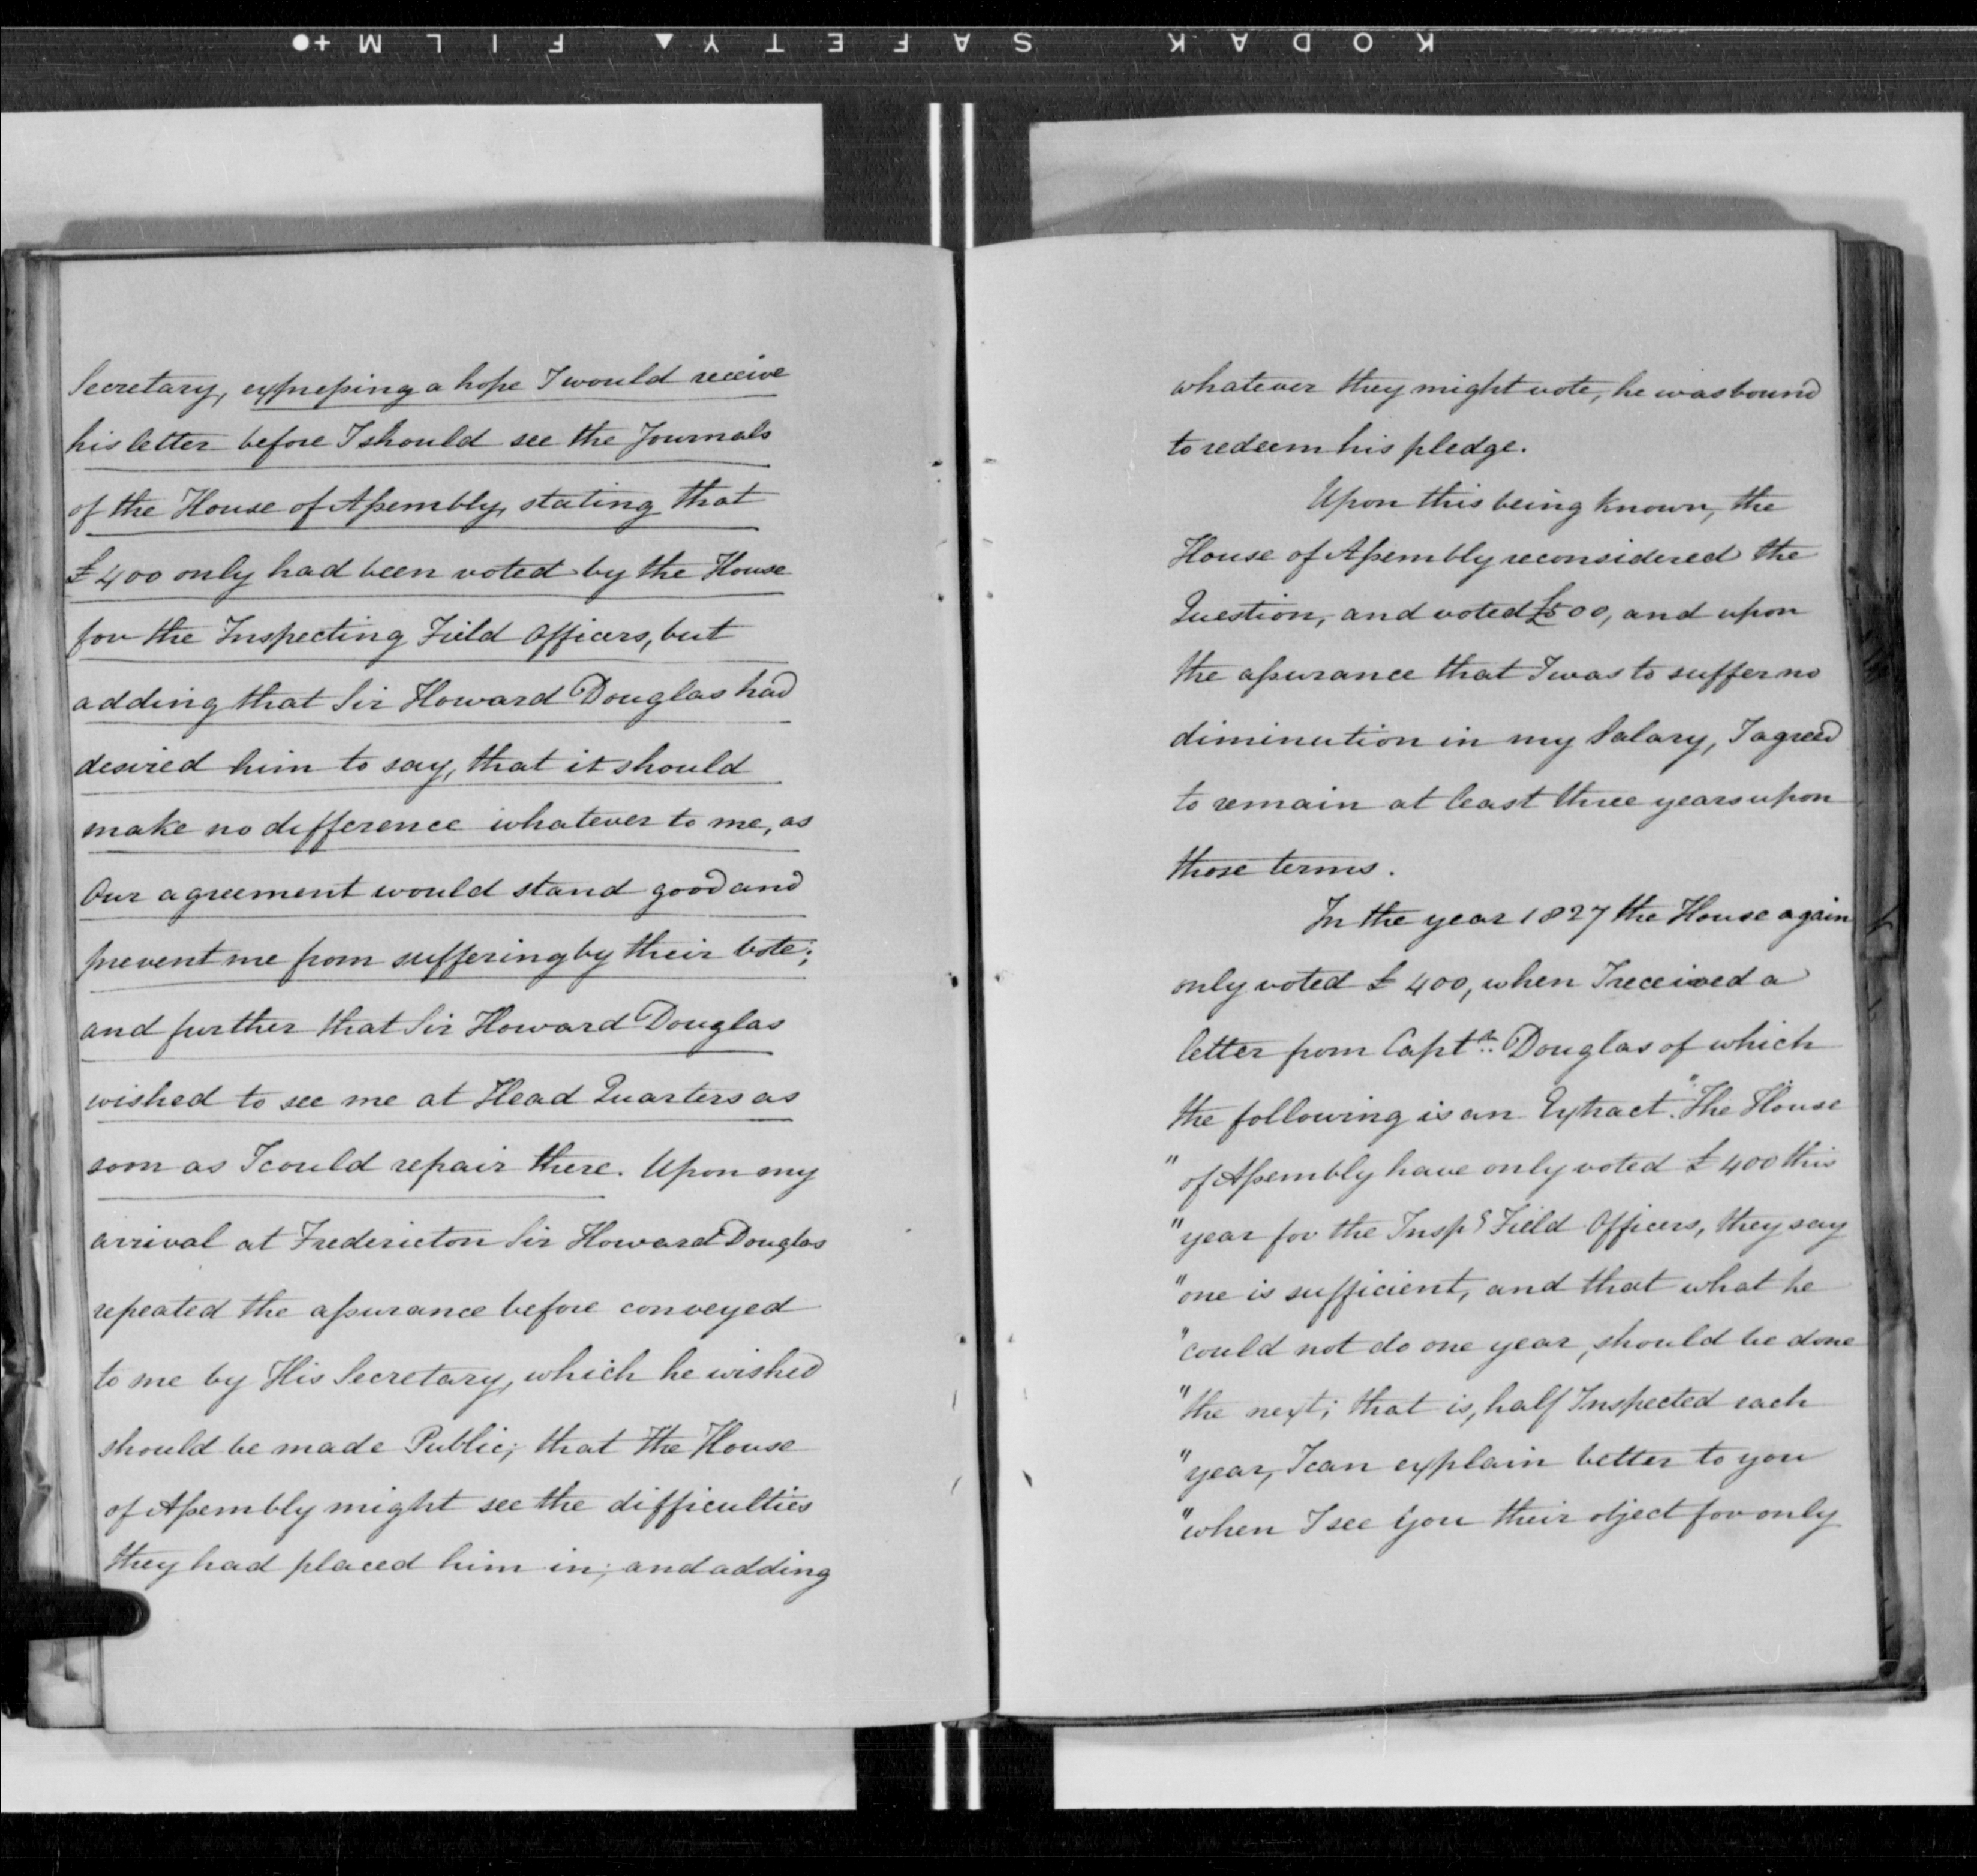 KODAK SAFETY ▲ FILM +●
Secretary, expressing a hope I would receive
his letter before I should see the Journals
of the House of Assembly, stating that
£400 only had been voted by the House
for the Inspecting Field Officers, but
adding that Sir Howard Douglas had
desired him to say, that it should
make no difference whatever to me, as
Our agreement would stand good and
prevent me from suffering by their Vote;
and further that Sir Howard Douglas
wished to see me at Head Quarters as
soon as I could repair there. Upon my
arrival at Fredericton Sir Howard Douglas
repeated the assurance before conveyed
to me by His Secretary, which he wished
should be made Public; that the House
of Assembly might see the difficulties
they had placed him in; and adding
whatever they might vote, he was bound
to redeem his pledge.
Upon this being known, the
House of Assembly reconsidered the
Question, and voted £500, and upon
the assurance that I was to suffer no
diminution in my Salary, I agreed
to remain at least three years upon
those terms.
In the year 1827 the House again
only voted £400, when I received a
letter from Captn. Douglas of which
the following is an Extract. "The House
" of Assembly have only voted £400 this
" year for the Inspg Field Officers, they say
" one is sufficient, and that what he
" could not do one year, should be done
" the next; that is, half Inspected each
" year, I can explain better to you
" when I see you their object for only